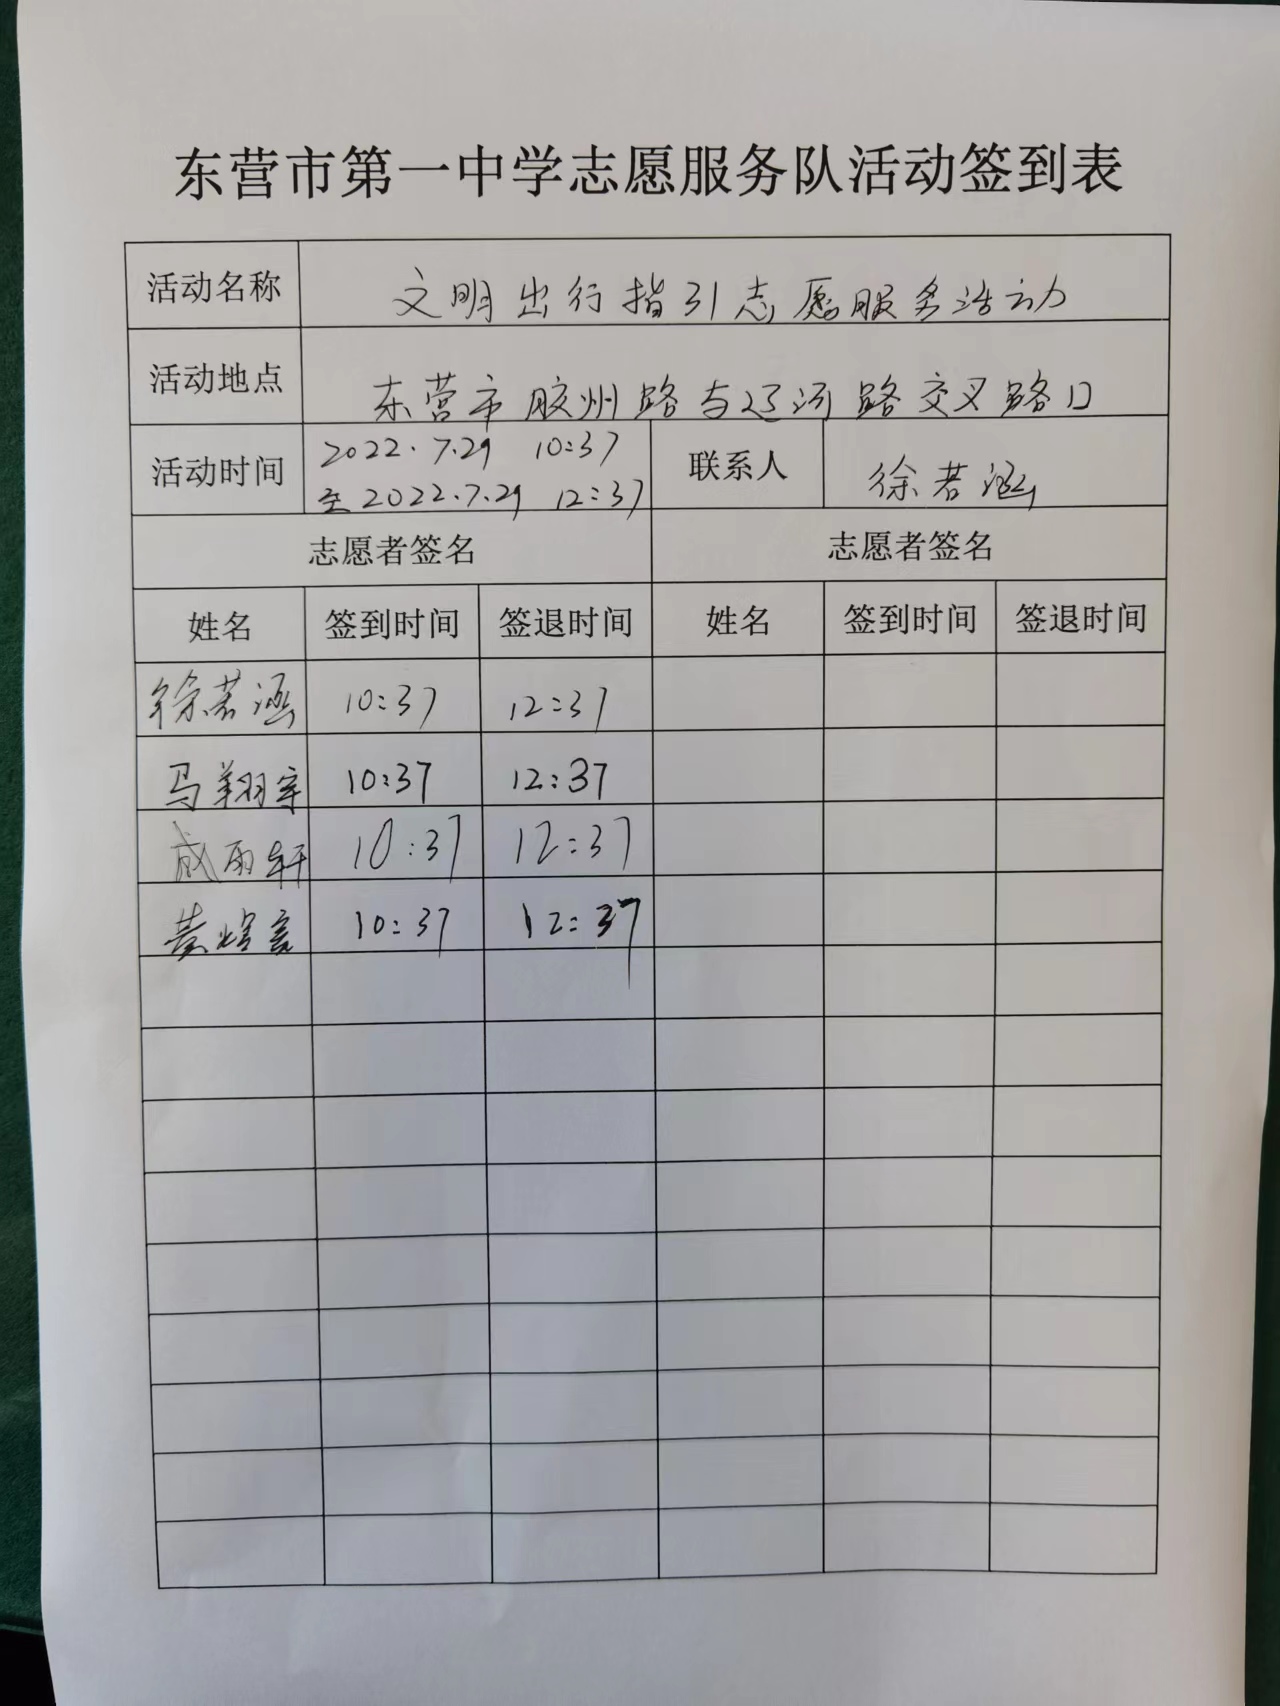 东营市第一中学志愿服务队活动签到表
活动名称 文明出行指引志愿服务活动
活动地点 东营市胶州路与辽河路交叉路口
活动时间 2022.7.29 10:37
至2022.7.29 12:37 联系人 徐若涵
志愿者签名 志愿者签名
姓名 签到时间 签退时间 姓名 签到时间 签退时间
徐若涵 10:37 12:37
马翔宇 10:37 12:37
雨轩 10:37 12:37
黄 10:37 12:37